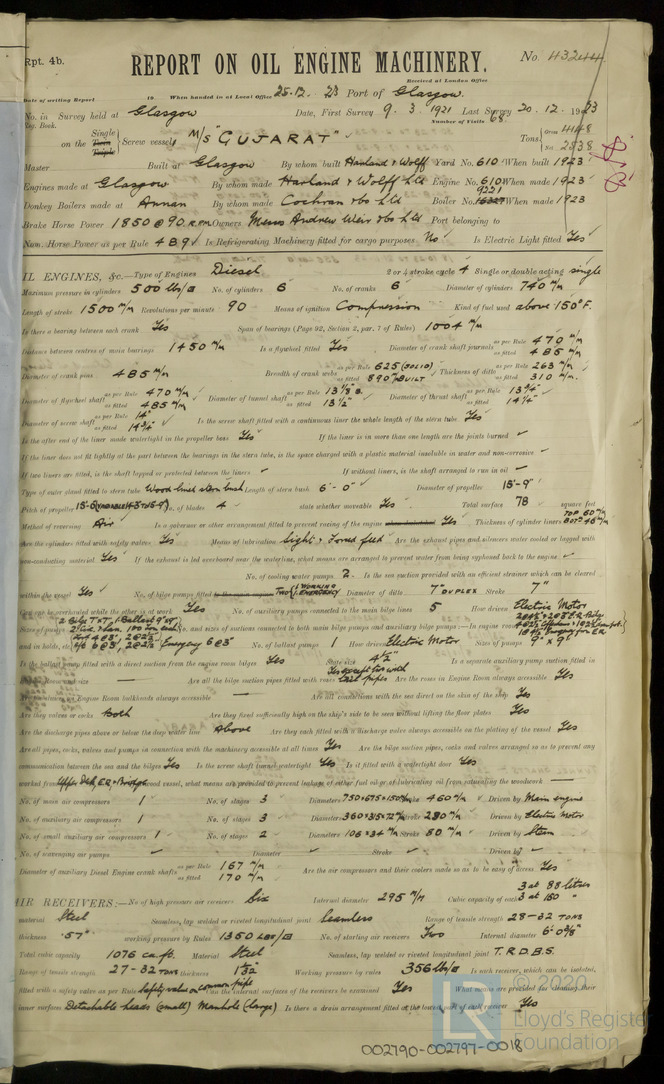 Rpt. 4b.
REPORT ON OIL ENGINE MACHINERY.
No. 43244
Received at London Office
Date of writing Report 19 When handed in at Local Office 28.12. 23 Port of Glasgow
No. in Survey held at Glasgow Date, First Survey 9. 3. 1921 Last Survey 20. 12. 1923
Reg. Book. Number of Visits 68
on the Single Twin Triple Screw vessel M/S "GUJARAT" Tons Gross 4148 Net 2538
Master Built at Glasgow By whom built Harland & Wolff Yard No. 610 When built 1923
Engines made at Glasgow By whom made Harland & Wolff Ltd Engine No. 610 When made 1923
Donkey Boilers made at Annan By whom made Cochran & Co Ltd Boiler No. 9221 When made 1923
Brake Horse Power 1850 @ 90 R.P.M. Owners Messrs Andrew Weir & Co Ltd Port belonging to
Nom. Horse Power as per Rule 489 Is Refrigerating Machinery fitted for cargo purposes No Is Electric Light fitted Yes
OIL ENGINES, &c.—Type of Engines Diesel 2 or 4 stroke cycle 4 Single or double acting single
Maximum pressure in cylinders 500 lbs/□ No. of cylinders 6 No. of cranks 6 Diameter of cylinders 740 m/m
Length of stroke 1500 m/m Revolutions per minute 90 Means of ignition Compression Kind of fuel used above 150° F.
Is there a bearing between each crank Yes Span of bearings (Page 92, Section 2, par. 7 of Rules) 1004 m/m
Distance between centres of main bearings 1450 m/m Is a flywheel fitted Yes Diameter of crank shaft journals as per Rule 470 m/m as fitted 485 m/m
Diameter of crank pins 485 m/m Breadth of crank webs as per Rule 625 (SOLID) as fitted 890 m/m BUILT Thickness of ditto as per Rule 263 m/m as fitted 310 m/m.
Diameter of flywheel shaft as per Rule 470 m/m as fitted 485 m/m Diameter of tunnel shaft as per Rule 13 1/8" as fitted 13 1/2" Diameter of thrust shaft as per Rule 13 3/4" as fitted 14 1/4"
Diameter of screw shaft as per Rule 14" as fitted 14 3/4" Is the screw shaft fitted with a continuous liner the whole length of the stern tube Yes
Is the after end of the liner made watertight in the propeller boss Yes If the liner is in more than one length are the joints burned
If the liner does not fit tightly at the part between the bearings in the stern tube, is the space charged with a plastic material insoluble in water and non-corrosive
If two liners are fitted, is the shaft lapped or protected between the liners If without liners, is the shaft arranged to run in oil
Type of outer gland fitted to stern tube Wood lined stern bush Length of stern bush 6'-0" Diameter of propeller 15'-9"
Pitch of propeller No. of blades 4 state whether moveable Yes Total surface 78 square feet
Method of reversing Air Is a governor or other arrangement fitted to prevent racing of the engine Yes Thickness of cylinder liners TOP 60 m/m BOT. 45 m/m
Are the cylinders fitted with safety valves Yes Means of lubrication Sight & Forced feed Are the exhaust pipes and silencers water cooled or lagged with
non-conducting material Yes If the exhaust is led overboard near the waterline, what means are arranged to prevent water from being syphoned back to the engine
No. of cooling water pumps 2. Is the sea suction provided with an efficient strainer which can be cleared
within the vessel Yes No. of bilge pumps fitted TWO Diameter of ditto 7" DUPLEX Stroke 7"
Can one be overhauled while the other is at work Yes No. of auxiliary pumps connected to the main bilge lines 5 How driven Electric Motor
Sizes of pumps, and sizes of suctions connected to both main bilge pumps and auxiliary bilge pumps:—In engine room
and in holds, etc. No. of ballast pumps 1 How driven Electric Motor Sizes of pumps 9" x 9"
Is the ballast pump fitted with a direct suction from the engine room bilges Yes State size 4 1/2" Is a separate auxiliary pump suction fitted in
Engine Room and size Are all the bilge suction pipes fitted with roses Are the roses in Engine Room always accessible Yes
Engine Room bulkheads always accessible Are all connections with the sea direct on the skin of the ship Yes
Are they valves or cocks Both Are they fixed sufficiently high on the ship's side to be seen without lifting the floor plates Yes
Are the discharge pipes above or below the deep water line Above Are they each fitted with a discharge valve always accessible on the plating of the vessel Yes
Are all pipes, cocks, valves and pumps in connection with the machinery accessible at all times Yes Are the bilge suction pipes, cocks and valves arranged so as to prevent any
communication between the sea and the bilges Yes Is the screw shaft tunnel watertight Yes Is it fitted with a watertight door Yes
worked from what means are provided to prevent leakage of either fuel oil or lubricating oil from saturating the woodwork
No. of main air compressors 1 No. of stages 3 Diameters 730 x 675 x 150 m/m Stroke 460 m/m Driven by Main engine
No. of auxiliary air compressors 1 No. of stages 3 Diameters 360 x 315 x 72 m/m Stroke 230 m/m Driven by Electric Motor
No. of small auxiliary air compressors 1 No. of stages 2 Diameters 106 x 34 m/m Stroke 80 m/m Driven by Steam
No. of scavenging air pumps Diameter Stroke Driven by
Diameter of auxiliary Diesel Engine crank shafts as per Rule 167 m/m as fitted 170 m/m Are the air compressors and their coolers made so as to be easy of access Yes
AIR RECEIVERS:—No. of high pressure air receivers Six Internal diameter 295 m/m Cubic capacity of each 3 at 88 litres 3 at 150 "
material Steel Seamless, lap welded or riveted longitudinal joint Seamless Range of tensile strength 28-32 TONS
thickness .57" working pressure by Rules 1350 LBS/□ No. of starting air receivers Two Internal diameter 6' 0 5/8"
Total cubic capacity 1076 ca.ft. Material Steel Seamless, lap welded or riveted longitudinal joint T.R.D.B.S.
Range of tensile strength 27-32 TONS thickness 1 5/32 Working pressure by rules 356 lbs/□ Is each receiver, which can be isolated,
fitted with a safety valve as per Rule Safety valve on common pipe Can the internal surfaces of the receivers be examined Yes What means are provided for cleaning their
inner surfaces Detachable heads (small) Manhole (large) Is there a drain arrangement fitted at the lowest part of each receiver Yes
© 2020
LR
Lloyd's Register
Foundation
002790-002797-0018